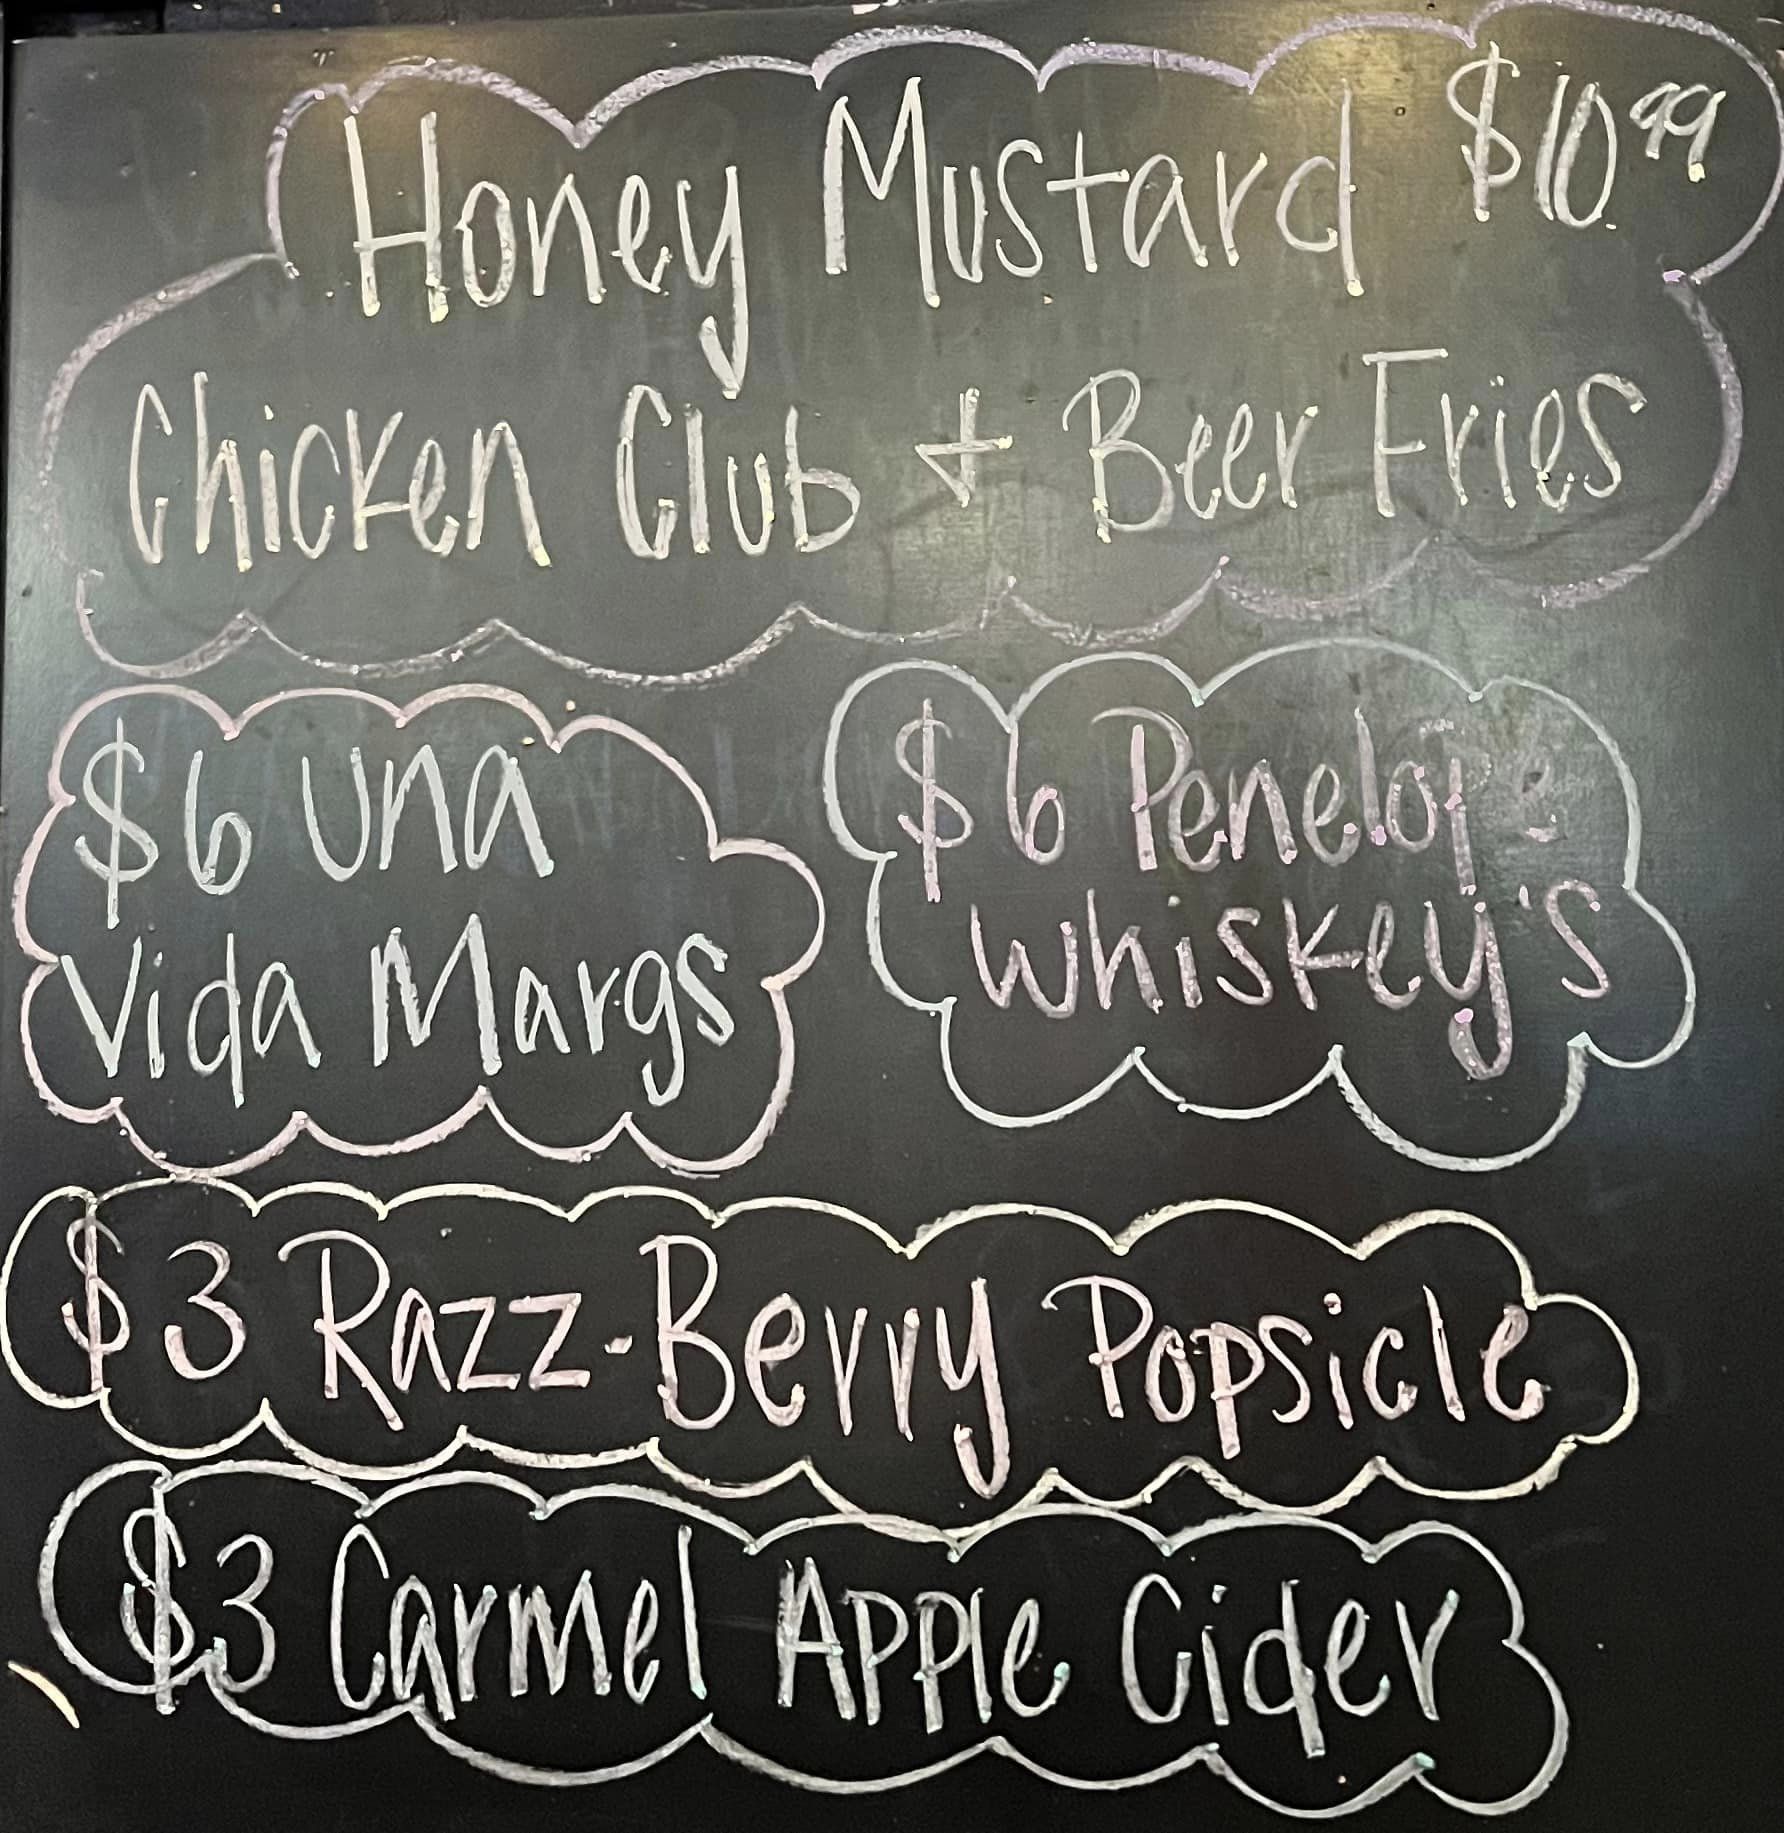 Honey Mustard $10.99
Chicken Club + Beer Fries
$6 Una
Vida Margs
$6 Penelope
Whiskey's
$3 Razz-Berry Popsicle
$3 Carmel Apple Cider